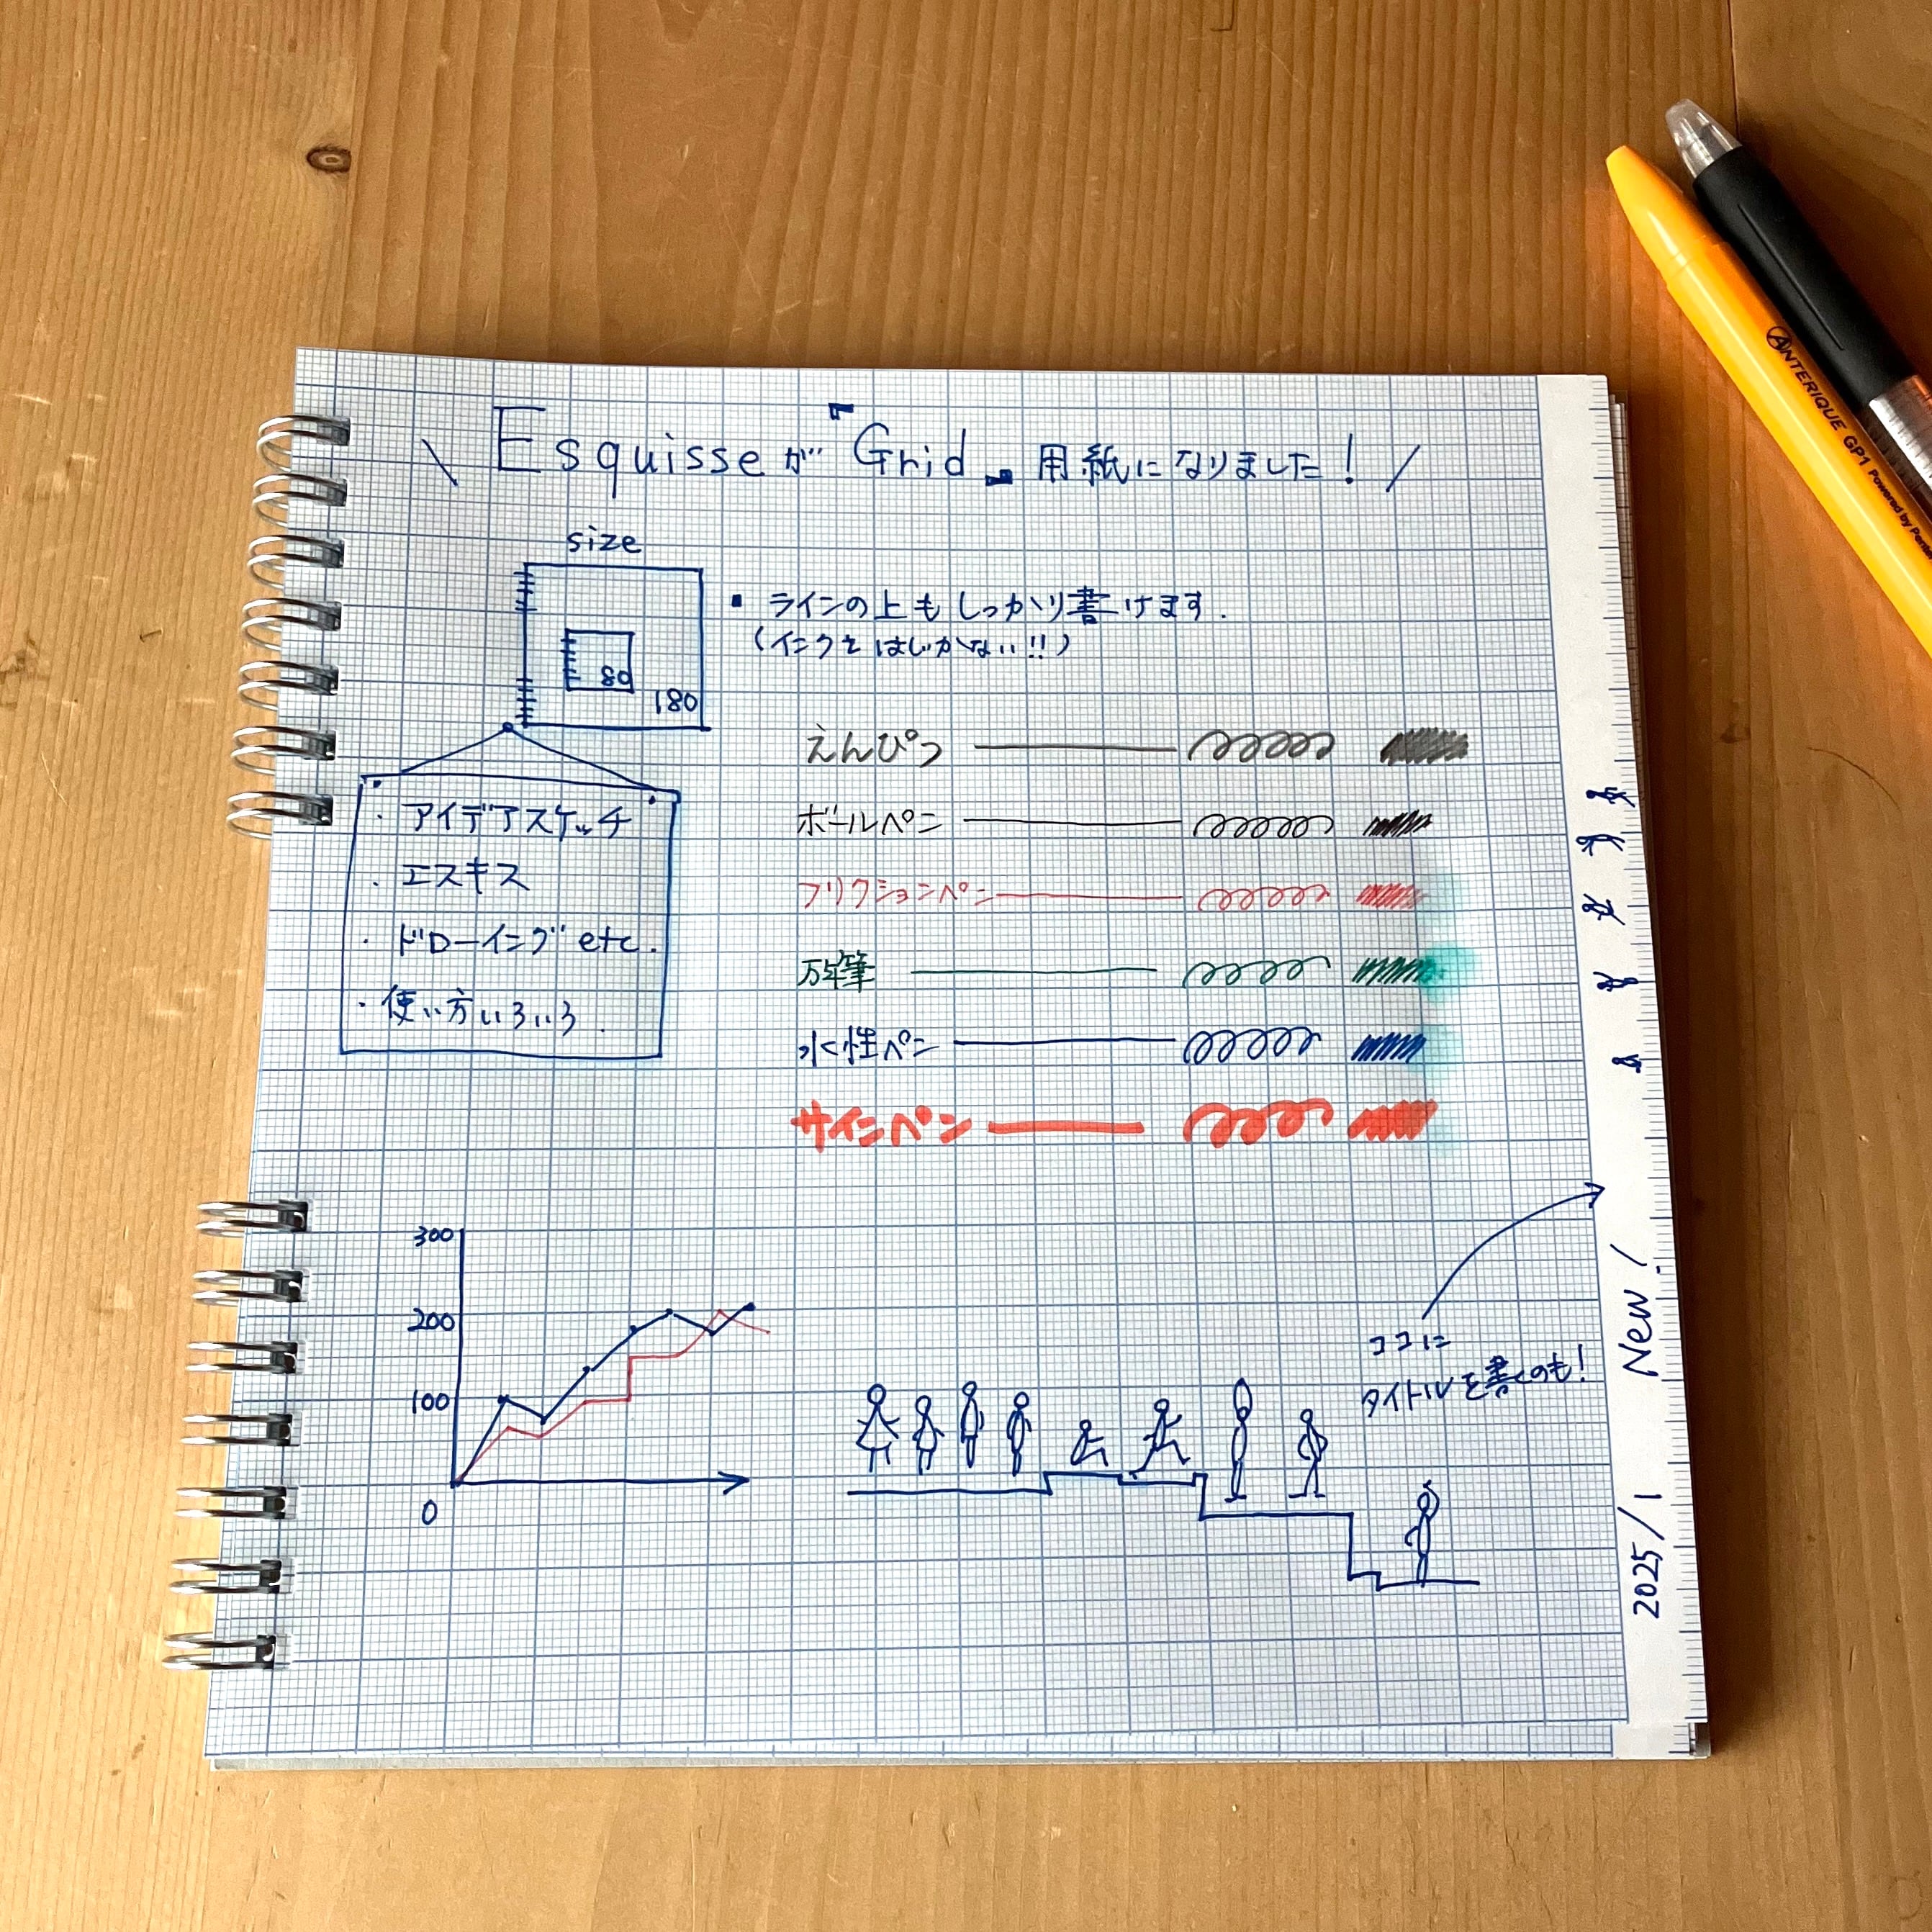 \ Esquisseが『Grid』用紙になりました! /
size
80
180
▪ ラインの上もしっかり書けます.
(インクをはじかない!!)
・アイデアスケッチ
・エスキス
・ドローイング etc.
・使い方いろいろ.
えんぴつ
ボールペン
フリクションペン
万年筆
水性ペン
サインペン
300
200
100
0
ココに
タイトルを書くのも!
2025/1 New!
ANTERIQUE GP1 Powered by Pentel